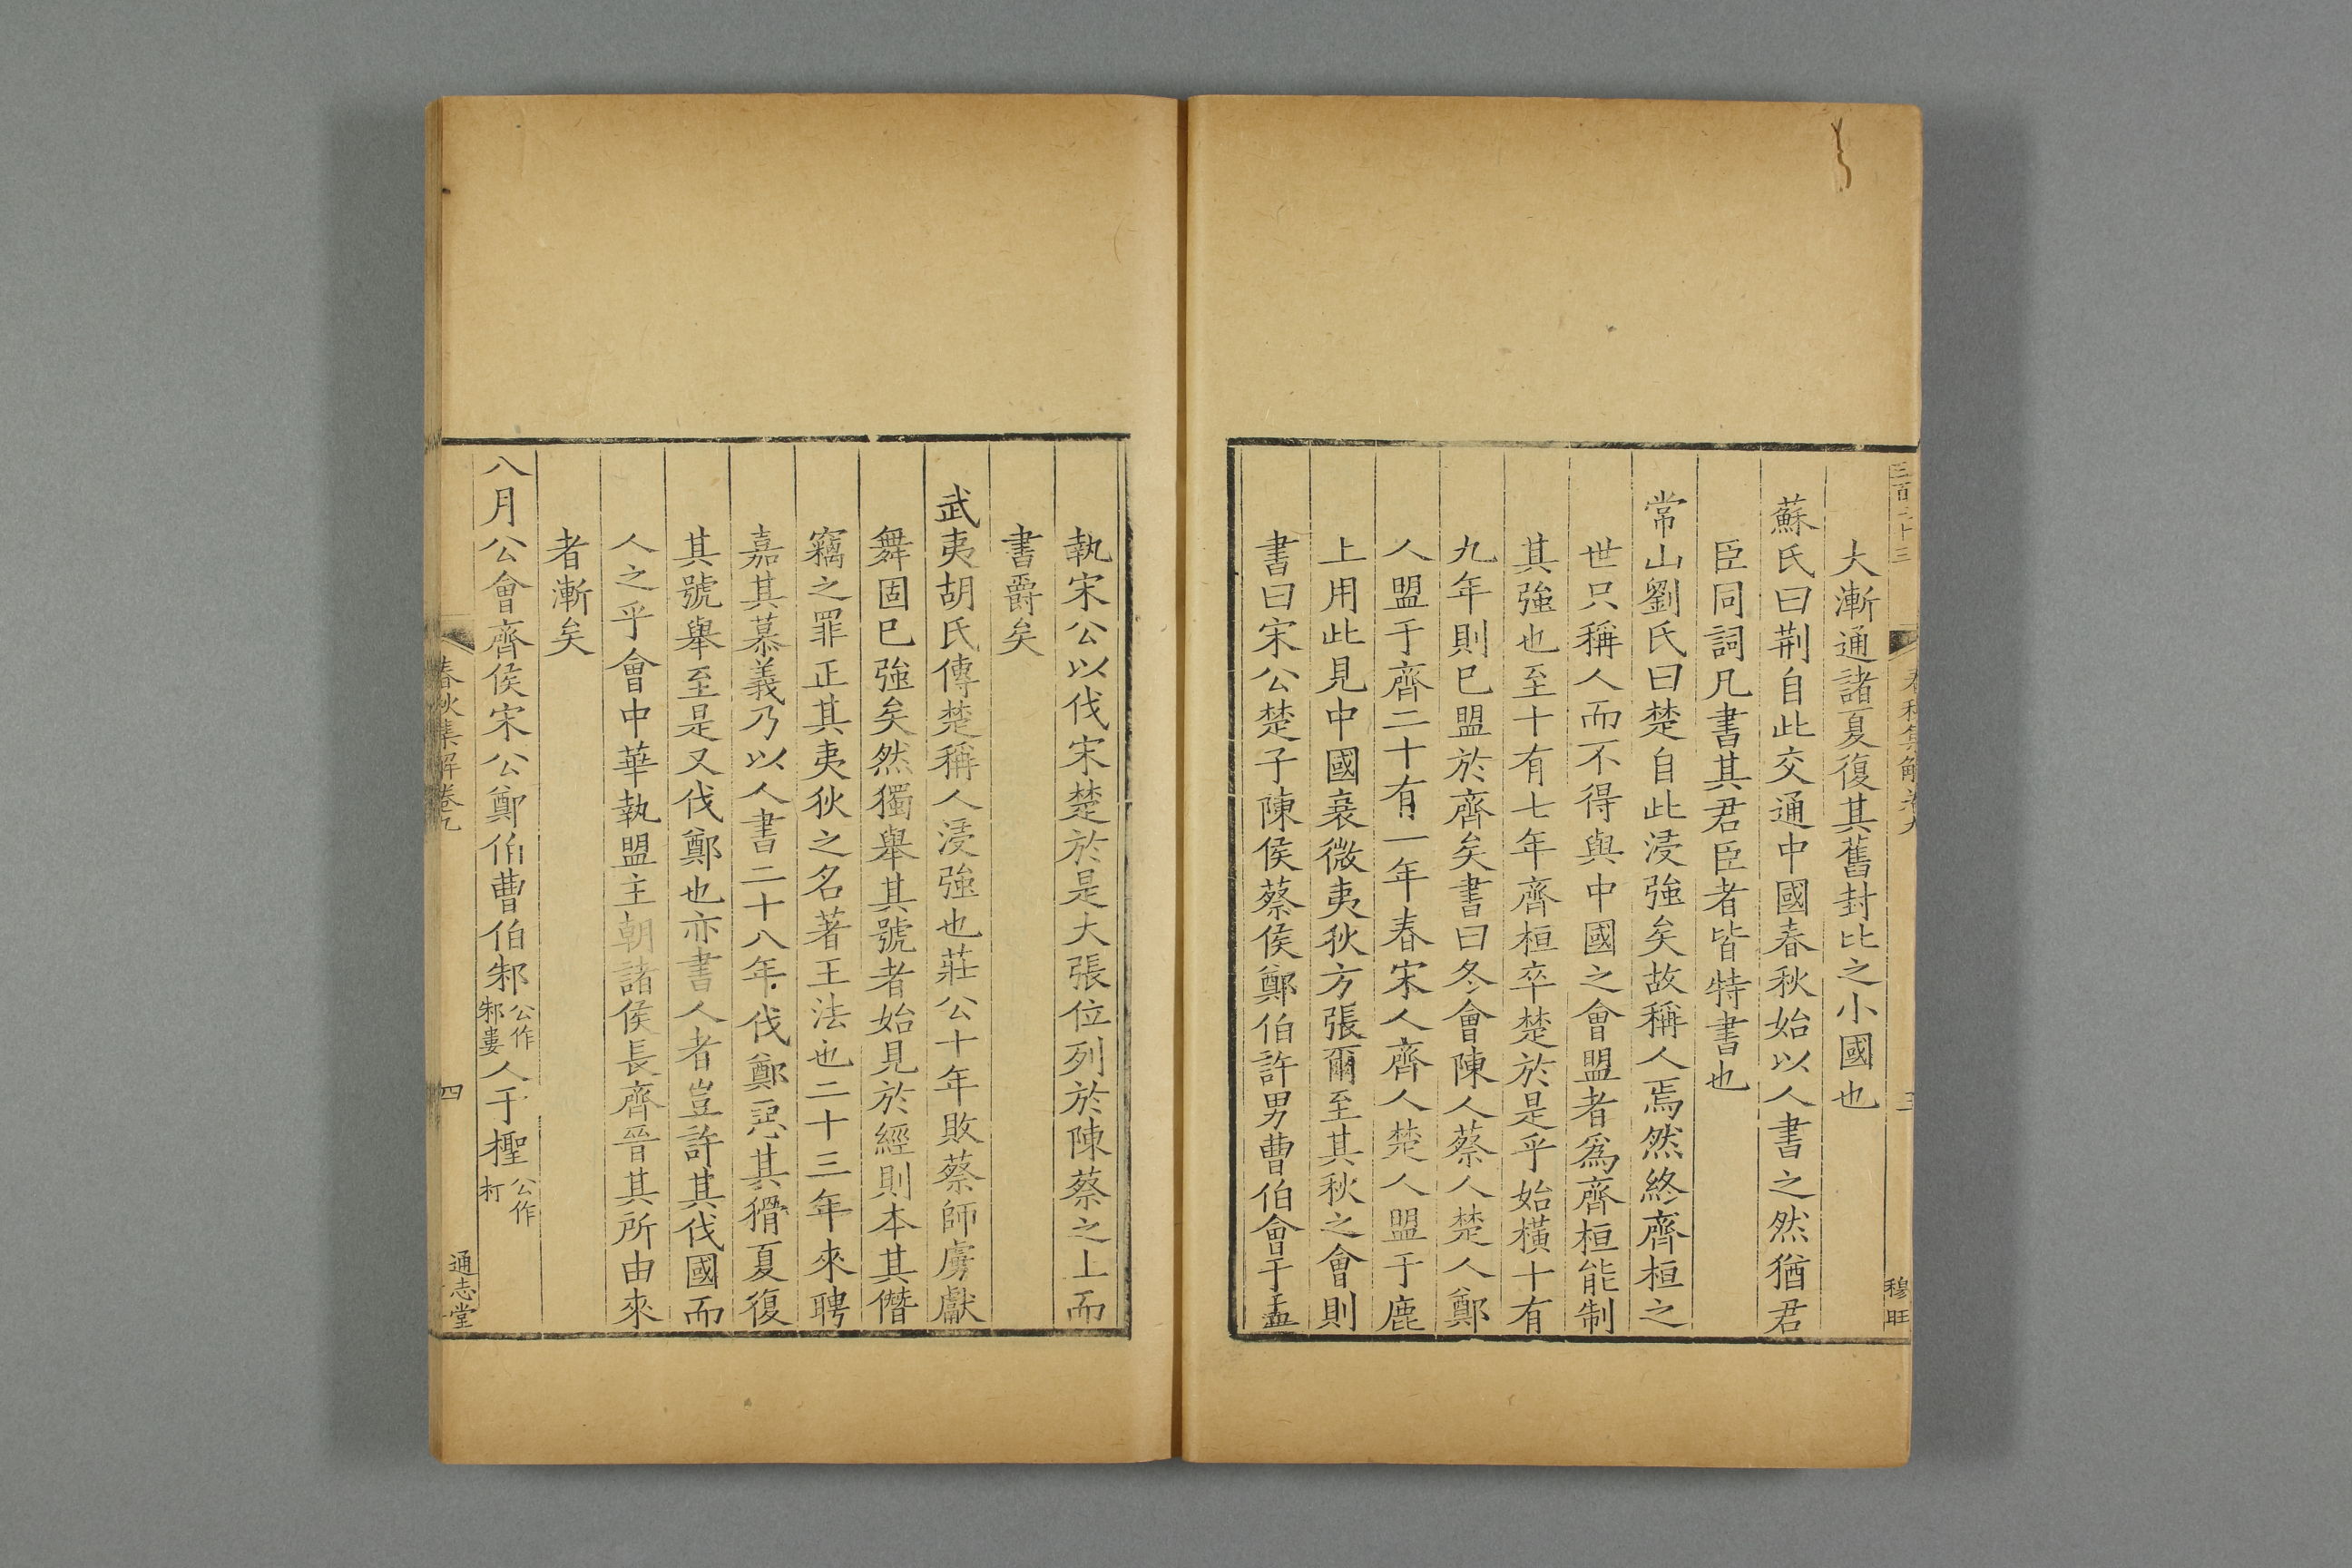 大漸通諸夏復其舊封比之小國也
蘇氏曰荆自此交通中國春秋始以人書之然猶君
臣同詞凡書其君臣者皆特書也
常山劉氏曰楚自此浸強矣故稱人焉然終齊桓之
世只稱人而不得與中國之會盟者爲齊桓能制
其強也至十有七年齊桓卒楚於是乎始橫十有
九年則已盟於齊矣書曰冬會陳人蔡人楚人鄭
人盟于齊二十有一年春宋人齊人楚人盟于鹿
上用此見中國衰微夷狄方張爾至其秋之會則
書曰宋公楚子陳侯蔡侯鄭伯許男曹伯會于盂
執宋公以伐宋楚於是大張位列於陳蔡之上而
書爵矣
武夷胡氏傳楚稱人浸強也莊公十年敗蔡師虜獻
舞固已強矣然獨舉其號者始見於經則本其僭
竊之罪正其夷狄之名著王法也二十三年來聘
嘉其慕義乃以人書二十八年伐鄭惡其猾夏復
其號舉至是又伐鄭也亦書人者豈許其伐國而
人之乎會中華執盟主朝諸侯長齊晉其所由來
者漸矣
八月公會齊侯宋公鄭伯曹伯邾公作邾婁人于檉公作朾
春秋集解卷九
四
通志堂
三百二十三
春秋集解卷九
三
穆旺